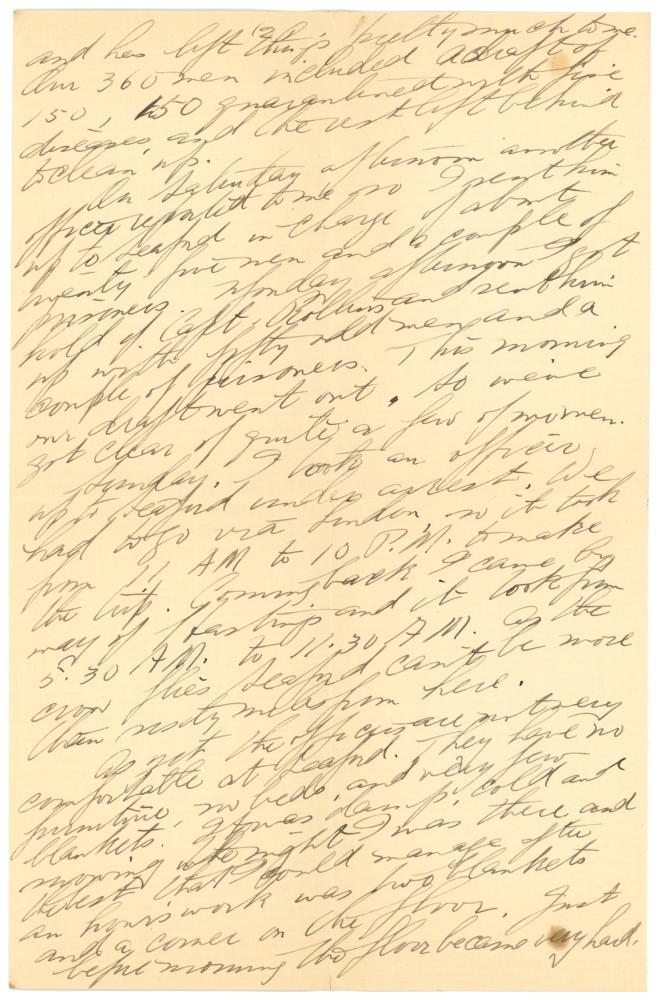 and has left things pretty much to me.
Our 360 men included a draft of
150, 150 quarantined with five
diseases, and the rest left behind
to clean up.
On Saturday afternoon another
officer reported to me so I sent him
up to Seaford in charge of about
twenty five men and a couple of
prisoners. Monday afternoon I got
hold of Capt. Rollins and sent him
up with fifty odd men and a
couple of prisoners. This morning
our draft went out. So we've
got clear of quite a few of our men.
Sunday, I took an officer
up to Seaford under arrest. We
had to go via London so it took
from 11 AM to 10 P.M. to make
the trip. Coming back I came by
way of Hastings and it took from
5.30 AM. to 11.30 AM. As the
crow flies Seaford can't be more
than sixty miles from here.
As yet the officers are not very
comfortable at Seaford. They have no
furniture, no beds, and very few
blankets. It was damp, cold and
snowing the night I was there and
the best that I could manage after
an hour's work was two blankets
and a corner on the floor. Just
before morning the floor became very hard.